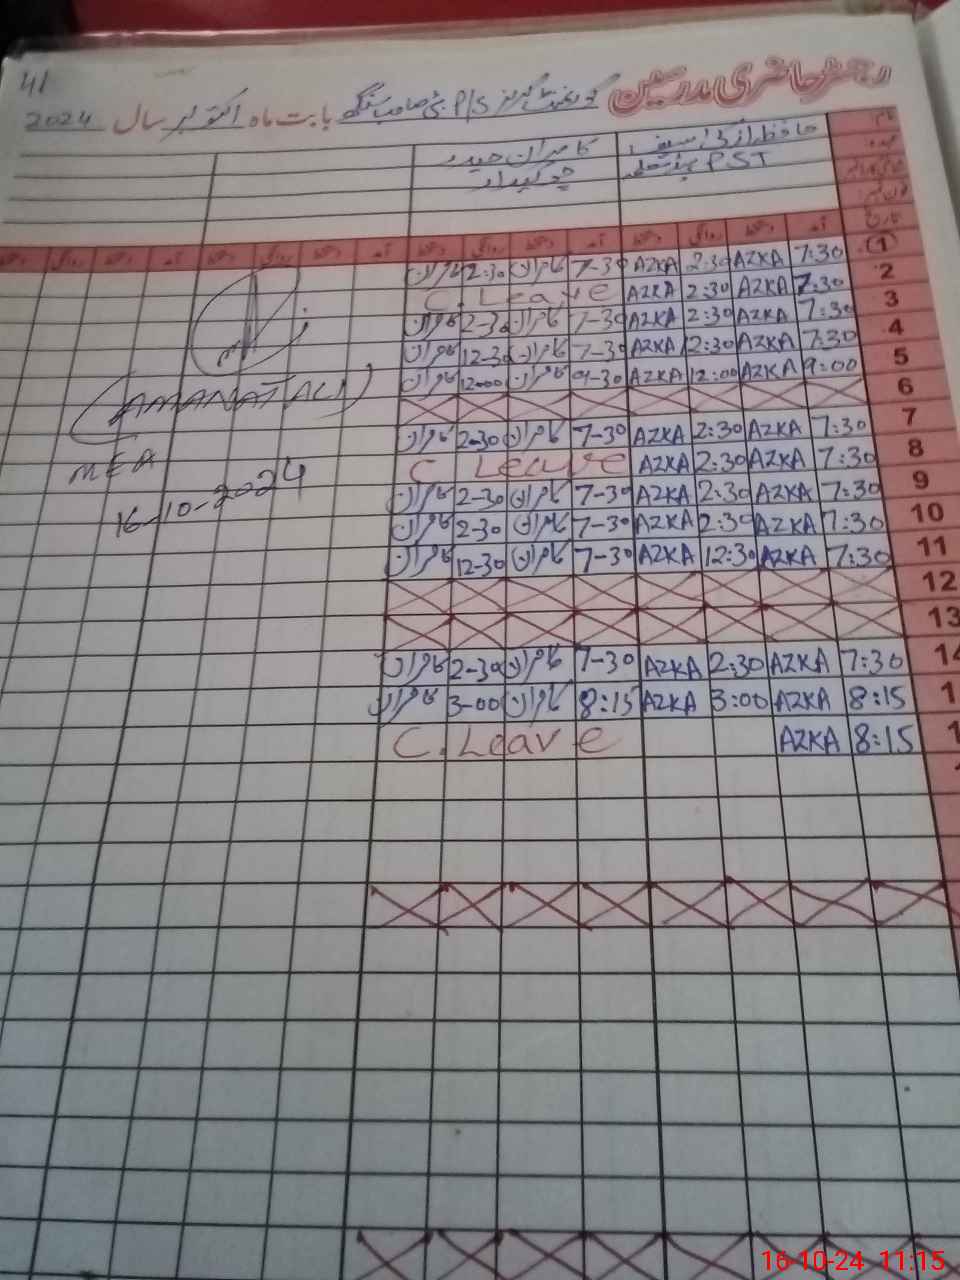 41
رجسٹر حاضری مدرسین گورنمنٹ گرلز P/S بابت ماہ اکتوبر سال 2024
نام حافظہ ازکیٰ سیف کامران حیدر
عہدہ PST چوکیدار
تاریخ آمد دستخط روانگی دستخط آمد دستخط روانگی دستخط آمد دستخط روانگی دستخط آمد دستخط روانگی دستخط
1 7:30 AZKA 2:30 AZKA 7-30 کامران 2:30 کامران
2 7:30 AZKA 2:30 AZKA C. Leave
3 7:30 AZKA 2:30 AZKA 7-30 کامران 2-30 کامران
4 7:30 AZKA 12:30 AZKA 7-30 کامران 12-30 کامران
5 9:00 AZKA 12:00 AZKA 9-30 کامران 12-00 کامران
6
7 7:30 AZKA 2:30 AZKA 7-30 کامران 2-30 کامران
8 7:30 AZKA 2:30 AZKA C. Leave
9 7:30 AZKA 2:30 AZKA 7-30 کامران 2-30 کامران
10 7:30 AZKA 2:30 AZKA 7-30 کامران 2-30 کامران
11 7:30 AZKA 12:30 AZKA 7-30 کامران 12-30 کامران
12
13
14 7:30 AZKA 2:30 AZKA 7-30 کامران 2-30 کامران
1 8:15 AZKA 3:00 AZKA 8:15 کامران 3-00 کامران
1 8:15 AZKA C. Leave
(AMANAT ALI)
MEA
16-10-2024
16-10-24 11:15